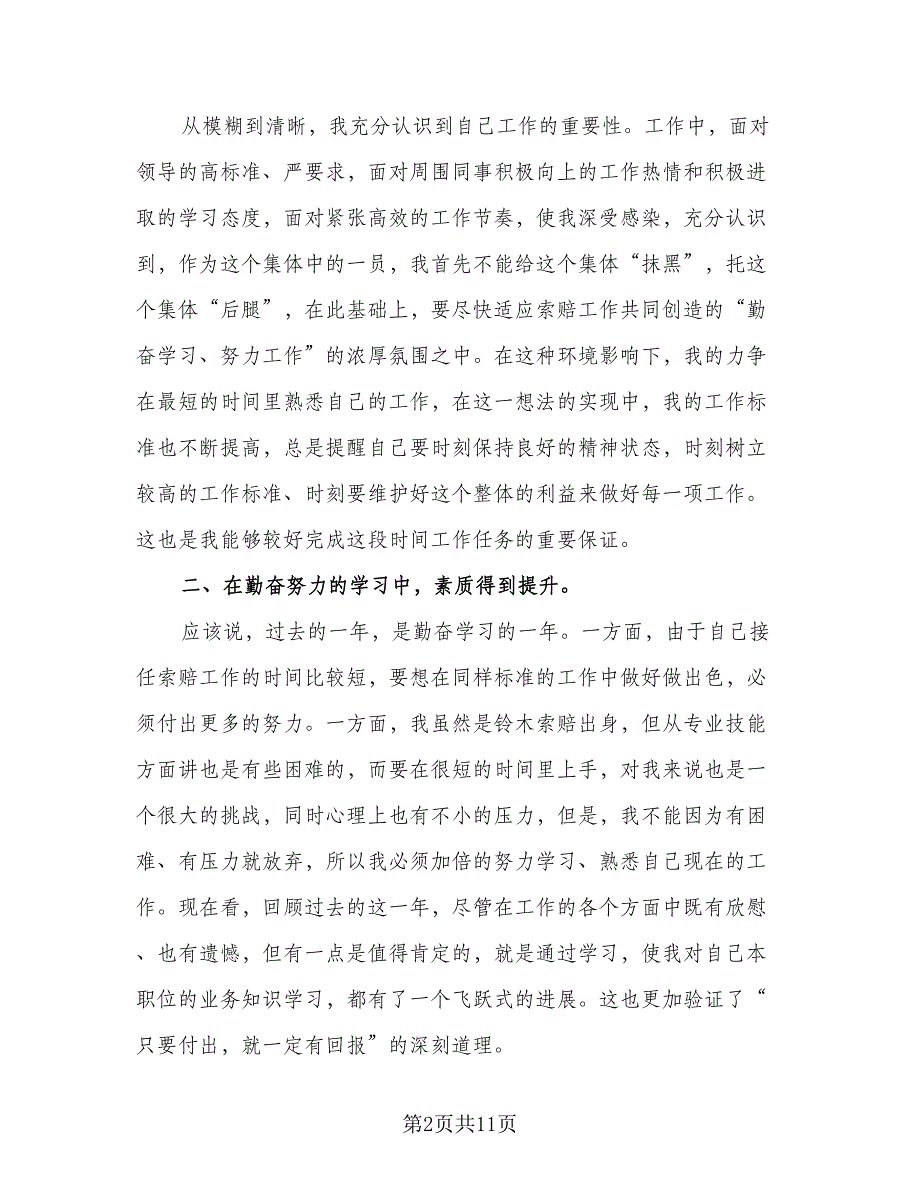 从模糊到清晰，我充分认识到自己工作的重要性。工作中，面对
领导的高标准、严要求，面对周围同事积极向上的工作热情和积极进
取的学习态度，面对紧张高效的工作节奏，使我深受感染，充分认识
到，作为这个集体中的一员，我首先不能给这个集体“抹黑”，托这
个集体“后腿”，在此基础上，要尽快适应索赔工作共同创造的“勤
奋学习、努力工作”的浓厚氛围之中。在这种环境影响下，我的力争
在最短的时间里熟悉自己的工作，在这一想法的实现中，我的工作标
准也不断提高，总是提醒自己要时刻保持良好的精神状态，时刻树立
较高的工作标准、时刻要维护好这个整体的利益来做好每一项工作。
这也是我能够较好完成这段时间工作任务的重要保证。
二、在勤奋努力的学习中，素质得到提升。
应该说，过去的一年，是勤奋学习的一年。一方面，由于自己接
任索赔工作的时间比较短，要想在同样标准的工作中做好做出色，必
须付出更多的努力。一方面，我虽然是铃木索赔出身，但从专业技能
方面讲也是有些困难的，而要在很短的时间里上手，对我来说也是一
个很大的挑战，同时心理上也有不小的压力，但是，我不能因为有困
难、有压力就放弃，所以我必须加倍的努力学习、熟悉自己现在的工
作。现在看，回顾过去的这一年，尽管在工作的各个方面中既有欣慰
、也有遗憾，但有一点是值得肯定的，就是通过学习，使我对自己本
职位的业务知识学习，都有了一个飞跃式的进展。这也更加验证了“
只要付出，就一定有回报”的深刻道理。
第2页共11页